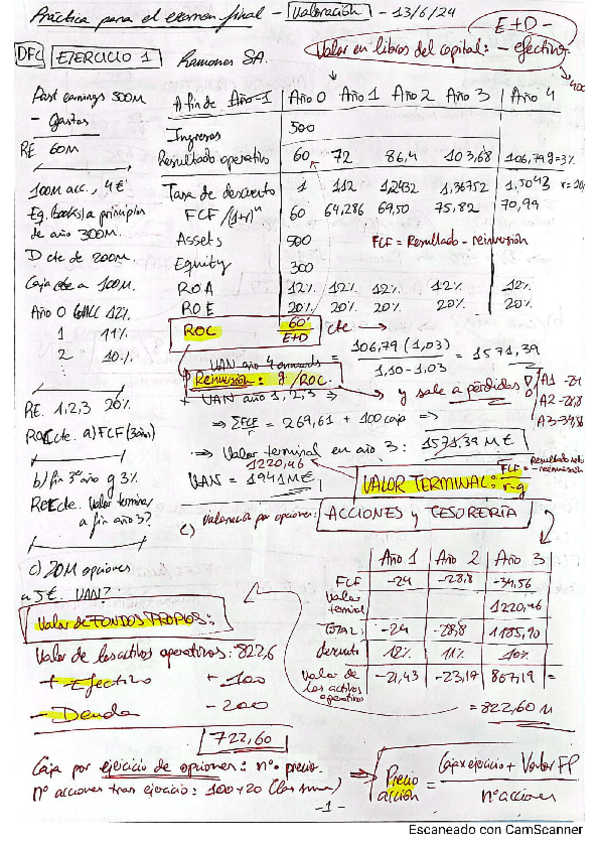 Práctica para el examen final - Valoración - 13/6/24
E+D-
Valor en libros del capital: - efectivo.
DFC EJERCICIO 1 Ramones SA.
Past earnings 500M
- gastos
RE 60M
100M acc., 4€
Eq. (books) a principios
de año 300M.
D cte de 200M.
Caja cte a 100M.
Año 0 WACC 12%
1 11%
2 10%
RE. 1,2,3 20%
ROC cte. a) FCF (3 años)
b) fin 3er año g 3%
ROC cte. Valor terminal
a fin año 3?
c) 20M opciones
a 5€. VAN?
A fin de Año -1 Año 0 Año 1 Año 2 Año 3 Año 4
Ingresos 500
Resultado operativo 60 72 86,4 103,68 106,79 g=3%
Tasa de descuento 1 1,12 1,2432 1,36752 1,5043
FCF/(1+r)^n 60 64,286 69,50 75,82 70,99
Assets 500 FCF = Resultado - reinversión
Equity 300
ROA 12% 12% 12% 12% 12%
ROE 20% 20% 20% 20% 20%
ROC 60/E+D cte
VAN año 4 = 106,79 (1,03) / 1,10 - 1,03 = 1571,39
Reinversión: g/ROC.
y sale a pérdidas A1 -24
A2 -28,8
A3 -34,56
+ VAN año 1, 2, 3
⇒ ΣFCF = 269,61 + 100 caja ⇒
⇒ Valor terminal en año 3: 1571,39 M€
1220,46
VAN = 1941 M€
VALOR TERMINAL: FCF = Resultado neto - reinversión / r-g
c) Valoración por opciones: ACCIONES y TESORERÍA
Año 1 Año 2 Año 3
FCF -24 -28,8 -34,56
Valor terminal 1220,46
Total: -24 -28,8 1185,90
descuento 12% 11% 10%
Valor de los activos operativos -21,43 -23,17 867,19 =
= 822,60 M
Valor de FONDOS PROPIOS:
Valor de los activos operativos: 822,6
+ Efectivo +100
- Deuda -200
722,60
Caja por ejercicio de opciones: nº · precio.
nº acciones tras ejercicio: 100+20 (las suma)
Precio acción = Caja x ejercicio + Valor FP / nº acciones
-1-
Escaneado con CamScanner